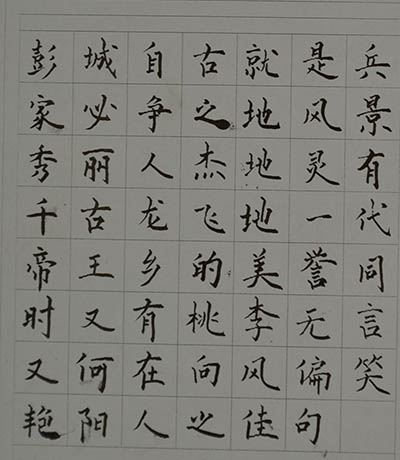 彭城自古就是兵
家必争之地风景
秀丽人杰地灵有
千古龙飞地一代
帝王乡的美誉同
时又有桃李无言
又何在向风偏笑
艳阳人之佳句